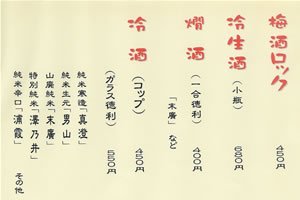 梅酒ロック 450円
冷生酒 (小瓶) 680円
燗酒 (一合徳利) 400円
「末廣」など
冷酒 (コップ) 450円
(ガラス徳利) 550円
純米寒造「真澄」
純米生元「男山」
山廃純米「末廣」
特別純米「澤乃井」
純米辛口「浦霞」 その他